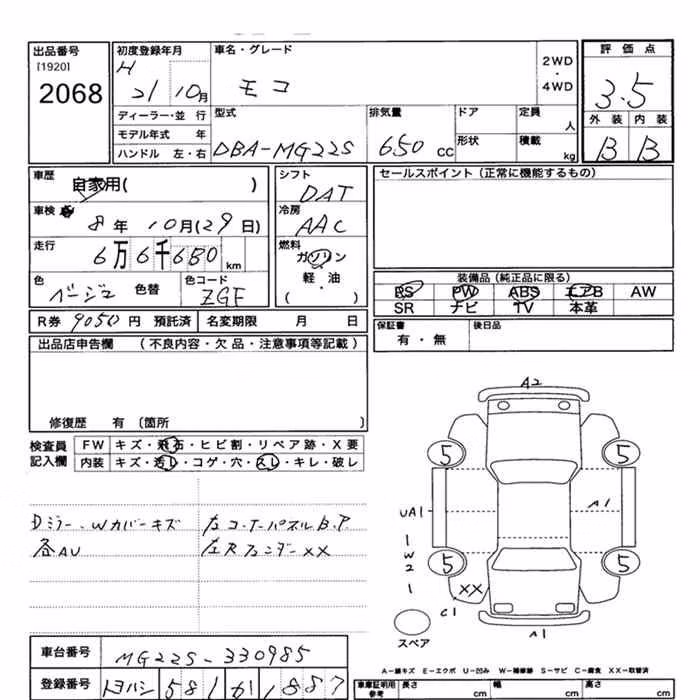 出品番号
[1920]
2068
初度登録年月
H
21 10月
車名・グレード
モコ
2WD
・
4WD
評価点
3.5
外装 内装
B B
ディーラー・並行
モデル年式 年
ハンドル 左・右
型式
DBA-MG22S
排気量
650 cc
ドア
形状
定員
人
積載
kg
車歴
自家用( )
車検
8年 10月(29日)
走行
6万6千680 km
色
ベージュ 色替
色コード
ZGF
シフト
DAT
冷房
AAC
燃料
ガソリン
軽・油
( ・ )
セールスポイント(正常に機能するもの)
装備品(純正品に限る)
PS PW ABS エアB AW
SR ナビ TV 本革
R券 9050円 預託済 名変期限 月 日
保証書
有・無
後日品
出品店申告欄 (不良内容・欠品・注意事項等記載)
修復歴 有 (箇所 )
検査員
記入欄
FW キズ・飛石・ヒビ割・リペア跡・X要
内装 キズ・汚レ・コゲ・穴・スレ・キレ・破レ
Dミラー・Wカバーキズ
各AU
左コーナーパネルB.P
左Rフェンダーxx
A2
5 5
UA1 A1
1
W
2
5 5
1
XX
C1
A1
スペア
A-線キズ E-エクボ U-凹み W-補修跡 S-サビ C-腐食 XX-取替済
車台番号 MG22S-330985
登録番号 トヨハシ 581 61 1887
車庫証明用
参考
長さ cm
幅 cm
高さ cm